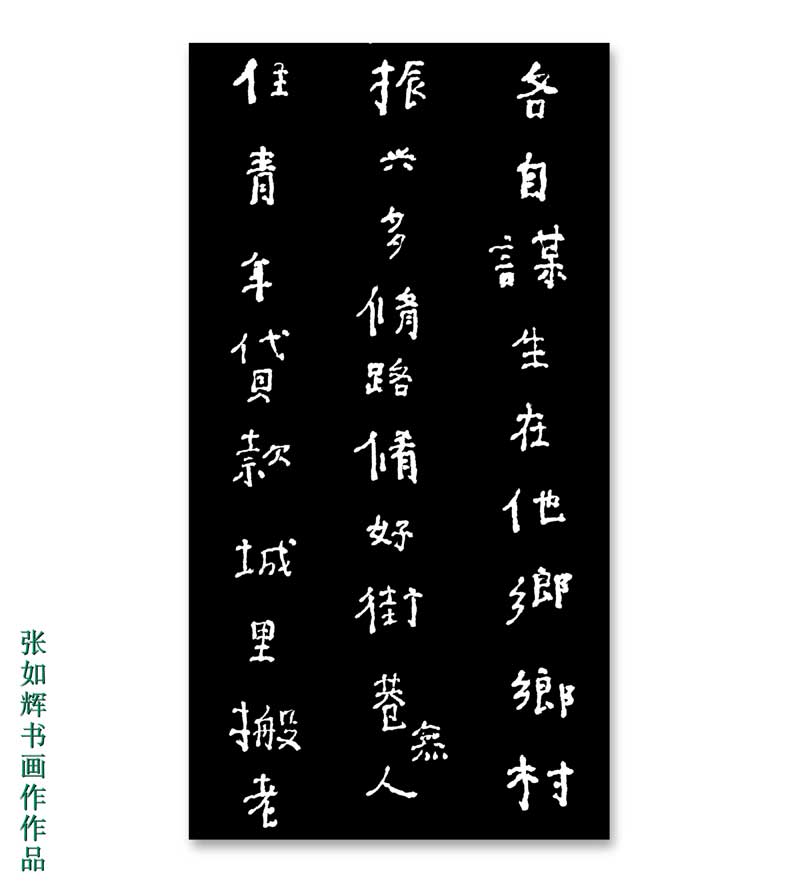 各自謀生在他鄉鄉村
振兴多脩路脩好街巷無人
住青年貸款城里搬老
张如辉书画作作品